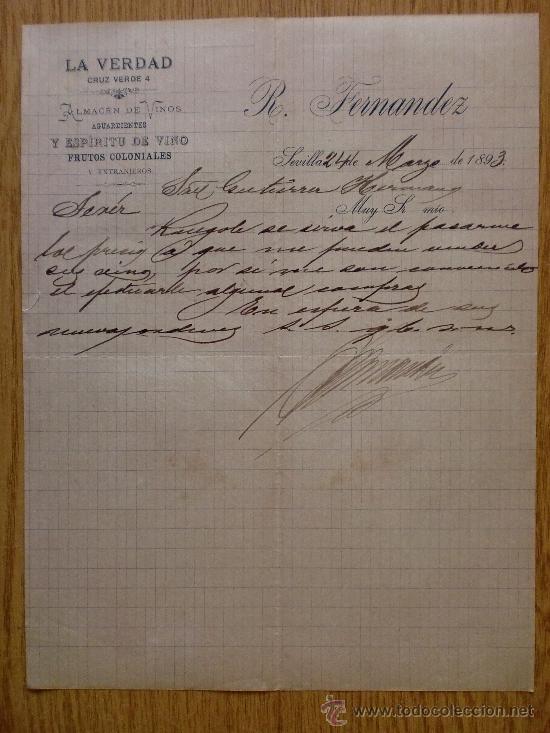 LA VERDAD
CRUZ VERDE 4
ALMACÉN DE VINOS
AGUARDIENTES
Y ESPÍRITU DE VINO
FRUTOS COLONIALES
Y EXTRANJEROS
R. Fernandez
Sevilla 24 de Marzo de 1893.
Gutierrez Hermanos
Jerez
Muy Sr. mio
Ruegole se sirva el pasarme
los á que me pueden vender
sus vinos, por si me son
el efectuarle algunas compras
En espera de sus
S. S. q. b. s. m.
todocoleccion
www.todocoleccion.net